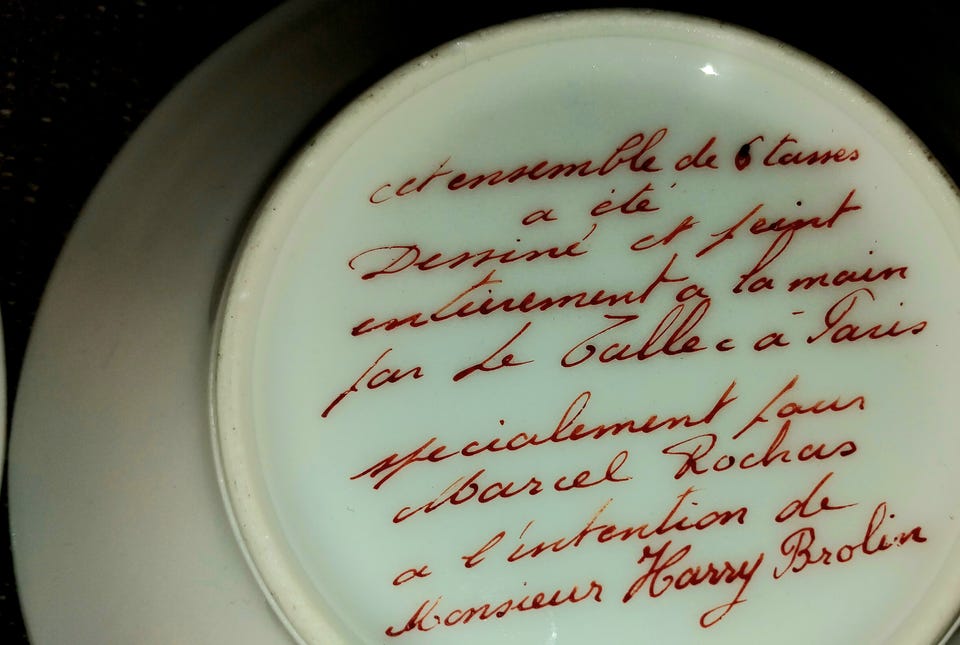 cet ensemble de 6 tasses
a été
Dessiné et peint
entierement a la main
par Le Tallec à Paris
specialement pour
Marcel Rochas
a l'intention de
Monsieur Harry Brolin